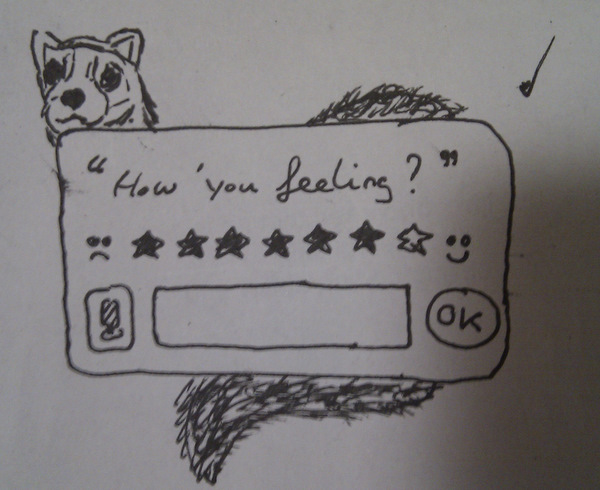 “How 'you feeling?”
OK